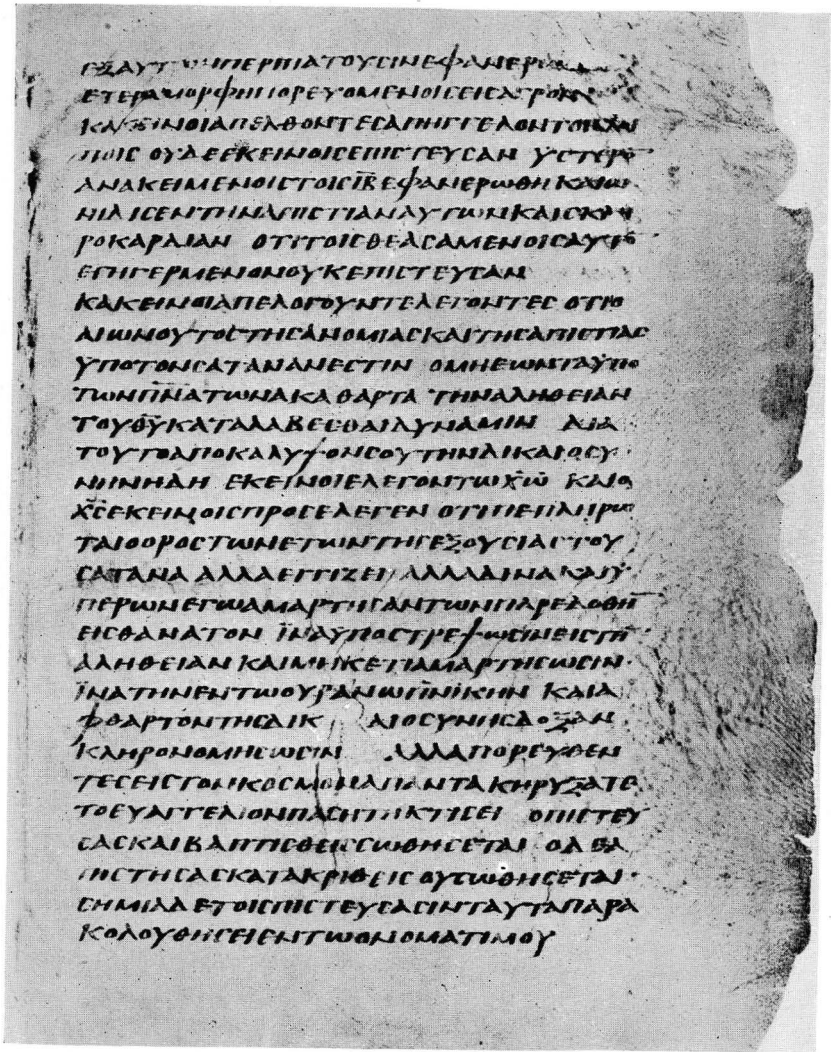 ΕΞΑΥΤΩΝΠΕΡΙΠΑΤΟΥΣΙΝΕΦΑΝΕΡΩ
ΕΤΕΡΑΜΟΡΦΗΠΟΡΕΥΟΜΕΝΟΙΣΕΙΣΑΓΡΟΝ
ΚΑΚΕΙΝΟΙΑΠΕΛΘΟΝΤΕΣΑΠΗΓΓΕΛΟΝΤΟΙΣΛΟΙ
ΠΟΙΣ ΟΥΔΕΕΚΕΙΝΟΙΣΕΠΙΣΤΕΥΣΑΝ ΥΣΤΕΡΟ
ΑΝΑΚΕΙΜΕΝΟΙΣΤΟΙΣΙ̅Α̅ΕΦΑΝΕΡΩΘΗΚΑΙΩ
ΝΙΔΙΣΕΝΤΗΝΑΠΙΣΤΙΑΝΑΥΤΩΝΚΑΙΣΚΛΗ
ΡΟΚΑΡΔΙΑΝ ΟΤΙΤΟΙΣΘΕΑΣΑΜΕΝΟΙΣΑΥΤΟ
ΕΓΗΓΕΡΜΕΝΟΝΟΥΚΕΠΙΣΤΕΥΣΑΝ
ΚΑΚΕΙΝΟΙΑΠΕΛΟΓΟΥΝΤΕΛΕΓΟΝΤΕΣ ΟΤΙΟ
ΑΙΩΝΟΥΤΟΣΤΗΣΑΝΟΜΙΑΣΚΑΙΤΗΣΑΠΙΣΤΙΑΣ
ΥΠΟΤΟΝΣΑΤΑΝΑΝΕΣΤΙΝ ΟΜΗΕΩΝΤΑΥΠΟ
ΤΩΝΠ̅Ν̅ΑΤΩΝΑΚΑΘΑΡΤΑ ΤΗΝΑΛΗΘΕΙΑΝ
ΤΟΥΘ̅Υ̅ΚΑΤΑΛΑΒΕΣΘΑΙΔΥΝΑΜΙΝ ΔΙΑ
ΤΟΥΤΟΑΠΟΚΑΛΥΨΟΝΣΟΥΤΗΝΔΙΚΑΙΟΣΥ
ΝΗΝΗΔΗ ΕΚΕΙΝΟΙΕΛΕΓΟΝΤΩΧ̅Ω̅ ΚΑΙΟ
Χ̅Σ̅ΕΚΕΙΝΟΙΣΠΡΟΣΕΛΕΓΕΝ ΟΤΙΠΕΠΛΗΡΩ
ΤΑΙΟΟΡΟΣΤΩΝΕΤΩΝΤΗΣΕΞΟΥΣΙΑΣΤΟΥ
ΣΑΤΑΝΑ ΑΛΛΑΕΓΓΙΖΕΙ ΑΛΛΑΔΙΝΑΚΑΙΥ
ΠΕΡΩΝΕΓΩΑΜΑΡΤΗΣΑΝΤΩΝΠΑΡΕΔΟΘΗ̅
ΕΙΣΘΑΝΑΤΟΝ ΪΝΑΥΠΟΣΤΡΕΨΩΣΙΝΕΙΣΤΗ̅
ΑΛΗΘΕΙΑΝ ΚΑΙΜΗΚΕΤΙΑΜΑΡΤΗΣΩΣΙΝ
ΪΝΑΤΗΝΕΝΤΩΟΥΡΑΝΩΠ̅Ν̅ΙΚΗΝ ΚΑΙΑ
ΦΘΑΡΤΟΝΤΗΣΔΙΚ ΑΙΟΣΥΝΗΣΔΟΞΑΝ
ΚΛΗΡΟΝΟΜΗΣΩΣΙΝ ΑΛΛΑΠΟΡΕΥΘΕΝ
ΤΕΣΕΙΣΤΟΝΚΟΣΜΟΝΑΠΑΝΤΑΚΗΡΥΞΑΤΕ
ΤΟΕΥΑΓΓΕΛΙΟΝΠΑΣΗΤΗΚΤΙΣΕΙ ΟΠΙΣΤΕΥ
ΣΑΣΚΑΙΒΑΠΤΙΣΘΕΙΣΣΩΘΗΣΕΤΑΙ ΟΔΕΑ
ΠΙΣΤΗΣΑΣΚΑΤΑΚΡΙΘΕΙΣΟΥΣΩΘΗΣΕΤΑΙ
ΣΗΜΙΑΔΕΤΟΙΣΠΙΣΤΕΥΣΑΣΙΝΤΑΥΤΑΠΑΡΑ
ΚΟΛΟΥΘΗΣΕΙΕΝΤΩΟΝΟΜΑΤΙΜΟΥ